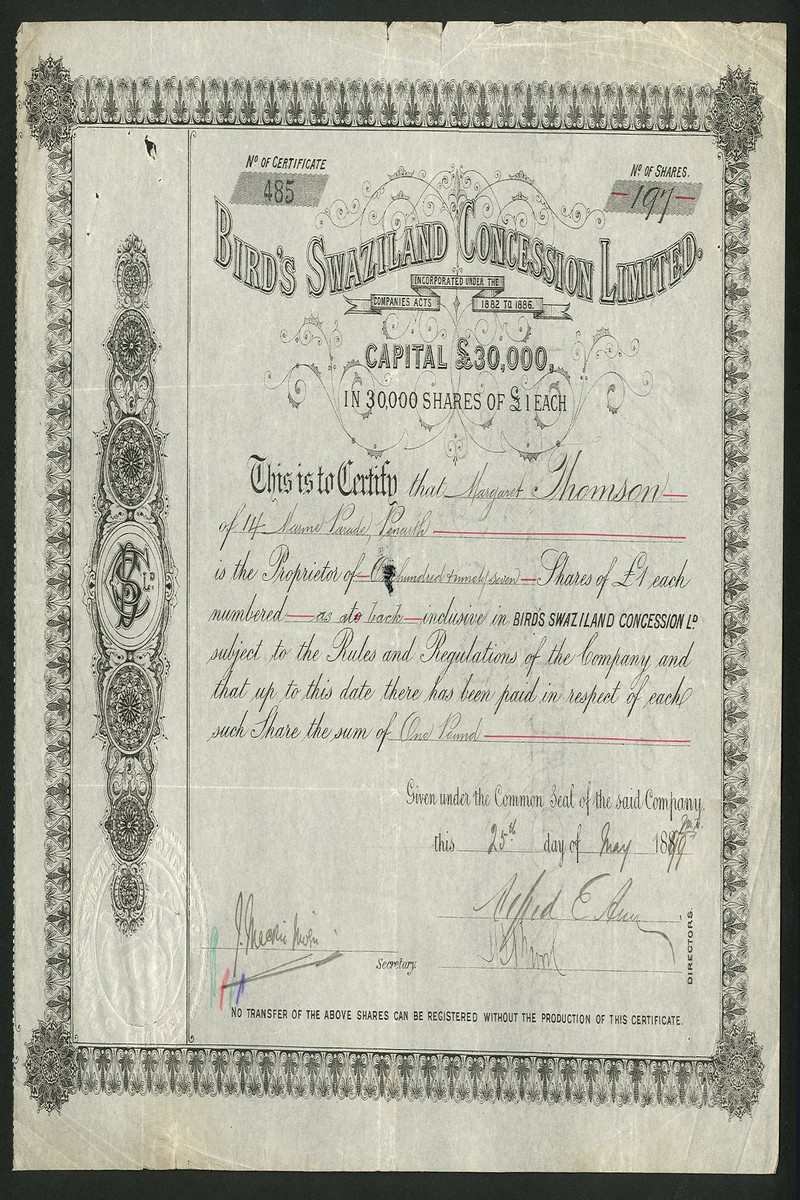 Nº OF CERTIFICATE
485
Nº OF SHARES.
197
BIRD'S SWAZILAND CONCESSION LIMITED.
INCORPORATED UNDER THE
COMPANIES ACTS 1882 TO 1886.
CAPITAL £30,000,
IN 30,000 SHARES OF £1 EACH
This is to Certify that Margaret Thomson
of 14 Marine Parade, Penarth
is the Proprietor of One hundred & ninety seven Shares of £1 each
numbered as at back inclusive in BIRD'S SWAZILAND CONCESSION Lᴰ
subject to the Rules and Regulations of the Company and
that up to this date there has been paid in respect of each
such Share the sum of One Pound
Given under the Common Seal of the said Company.
this 25th day of May 1889
Alfred E
Secretary.
DIRECTORS.
NO TRANSFER OF THE ABOVE SHARES CAN BE REGISTERED WITHOUT THE PRODUCTION OF THIS CERTIFICATE.